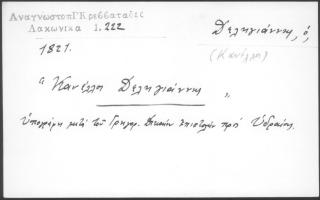 Αναγνωστοπ Γ Κρεββατάδες
Λακωνικα 1.222
Δεληγιάννης, ὁ,
(Κανέλλη)
1821.
"Κανέλλη Δεληγιάννης"
ὑπογράφει μετά τοῦ Γρηγορ. Δικαίου ἐπιστολήν πρός Ὑδραίους.